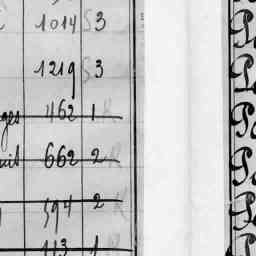 1014 S 3
1219 S 3
ges 462 1 R
uit 662 2 R
594 2 R
113 1